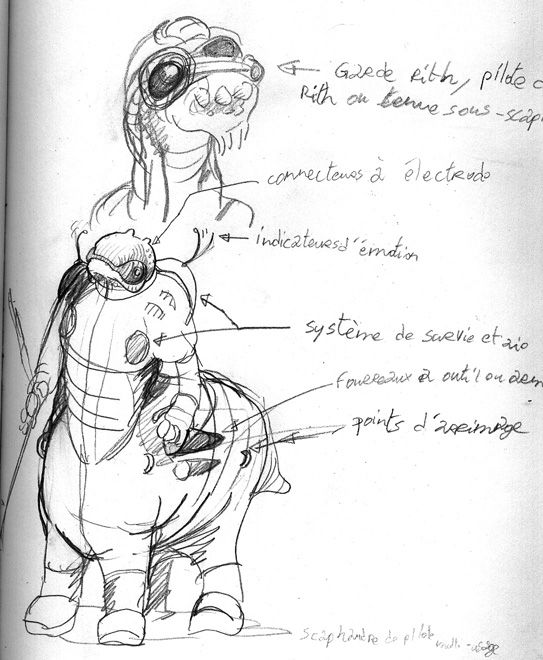 Garde Rith, pilote
Rith ou tenue sous-scap
connecteurs à électrode
indicateurs d'émotion
système de survie et
fourreaux à outil ou arm
points d'arrimage
scaphandre de pilote
multi-usage